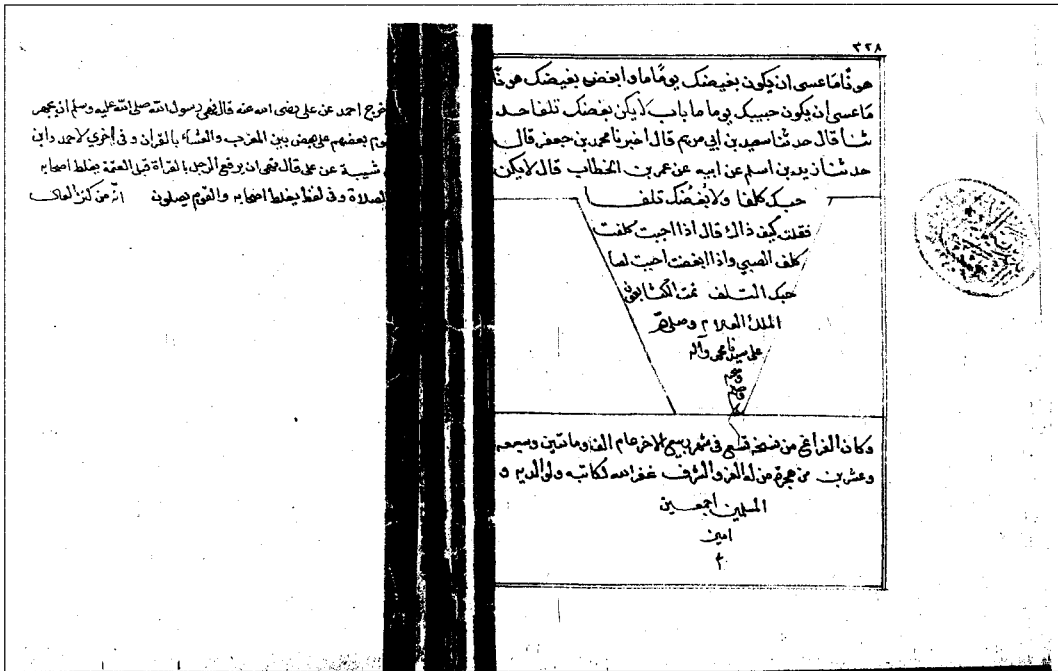 ٣٢٨
هونًا مَا عسى ان يكون بغيضك يومًا ما وابغض بغيضك هونًا
مَا عسى ان يكون حبيبك يوما ما باب لا يكن بغضك تلفا حد
ثنا قال حدثنا سعيد بن ابي مريم قال اخبرنا محمد بن جعفر قال
حدثنا زيد بن اسلم عن ابيه عن عمر بن الخطاب قال لا يكن
حبك كلفا ولا بُغضُك تلفا
فقلت كيف ذاك قال اذا احببت كلفت
كلف الصبي واذا ابغضت احببت لصا
حبك التلف تمت الكتاب بعون
الملك العلام وصلى
على سيدنا محمد وآله
وصحبه
وكان الفراغ من نسخة في شهر ربيع الاخر عام الف ومائتين وسبعه
وعشرين من هجرة من له العز والشرف غفر الله لكاتبه ولوالديه و
المسلمين اجمعين
امين
٢
خرج احمد عن علي رضى الله عنه قال نهى رسول الله صلى الله عليه وسلم ان يجهر
بعضهم على بعض بين المغرب والعشاء بالقران وفى اخري لاحمد وابن
شيبة عن على قال نهى ان يرفع الرجل بالقراة قبل العتمة يغلط اصحابه
الصلاة وفى لفظ يغلط اصحابه والقوم يصلون من كنز العمال